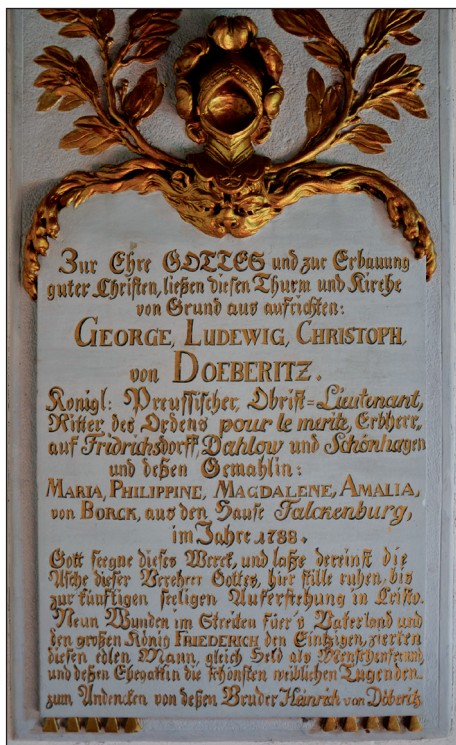 Zur Ehre GOTTES und zur Erbauung
guter Christen, ließen diesen Thurm und Kirche
von Grund aus aufrichten:
GEORGE, LUDEWIG, CHRISTOPH,
von DOEBERITZ.
Königl: Preussischer, Obrist=Lieutenant,
Ritter des Ordens pour le merite, Erbherr,
auf Fridrichsdorff, Dahlow und Schönhagen
und deßen Gemahlin:
MARIA, PHILIPPINE, MAGDALENE, AMALIA,
von BORCK, aus den Hause Falckenburg,
im Jahre 1788.
Gott seegne dieses Werck, und laße dereinst die
Asche dieser Verehrer Gottes, hier stille ruhen, bis
zur künftigen seeligen Auferstehung in Cristo.
Neun Wunden im Streiten für's Vaterland und
den großen König FRIEDERICH den Eintzigen, zierten
diesen edlen Mann, gleich Held als Menschenfreund
und deßen Ehegattin die schönsten weiblichen Tugenden
zum Andencken von deßen Bruder Heinrich von Döberitz